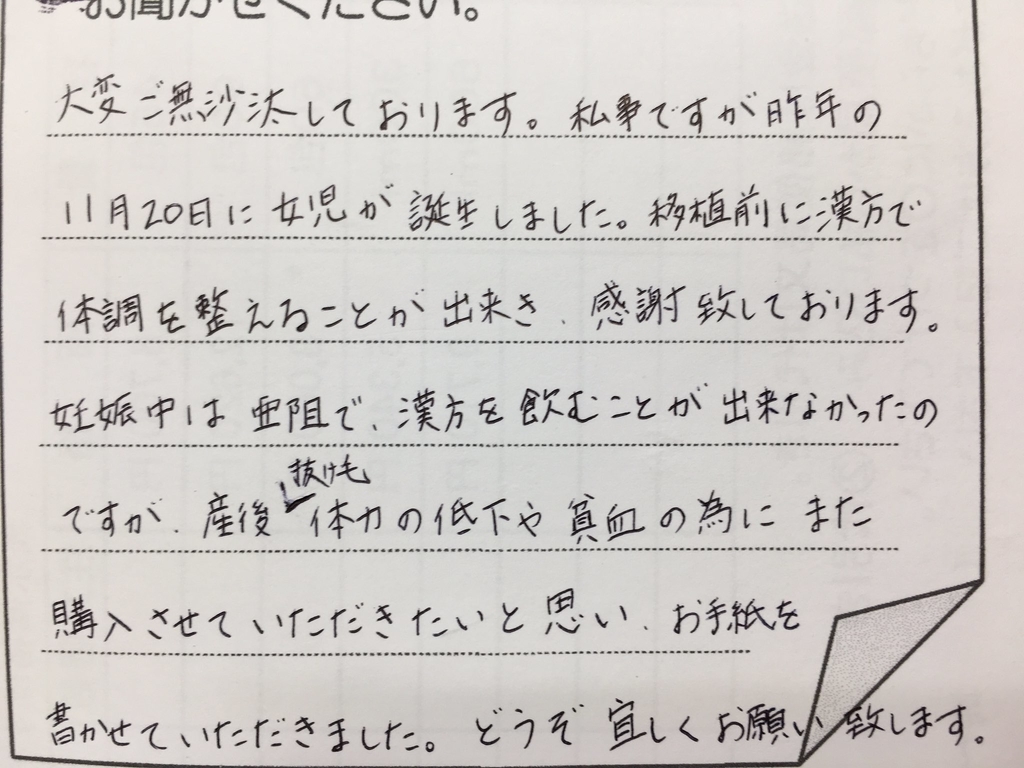 お聞かせください。
大変ご無沙汰しております。私事ですが昨年の
11月20日に女児が誕生しました。移植前に漢方で
体調を整えることが出来き、感謝致しております。
妊娠中は悪阻で、漢方を飲むことが出来なかったの
抜け毛
ですが、産後体力の低下や貧血の為にまた
購入させていただきたいと思い、お手紙を
書かせていただきました。どうぞ宜しくお願い致します。